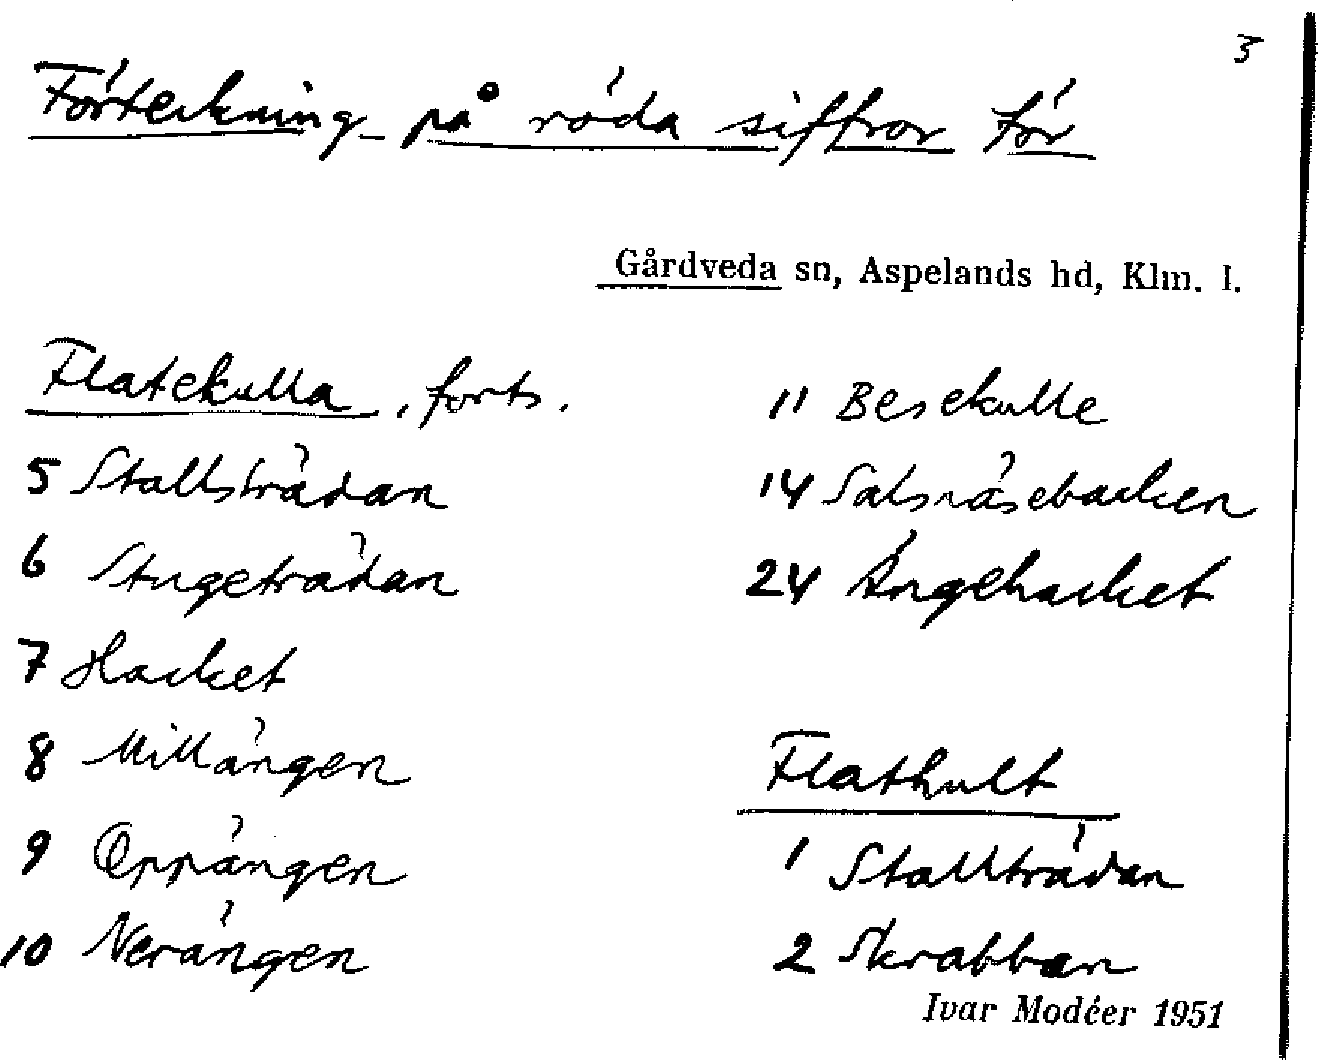 3
Förteckning på röda siffror för
Gårdveda sn, Aspelands hd, Klm. l.
Flatekulla, forts.
5 Stallsträdan
6 Stugeträdan
7 Hacket
8 Millängen
9 Oppängen
10 Nerängen
11 Besekulle
14 Salsnäsebacken
24 Ängehacket
Flathult
1 Stallträdan
2 Skrabban
Ivar Modéer 1951